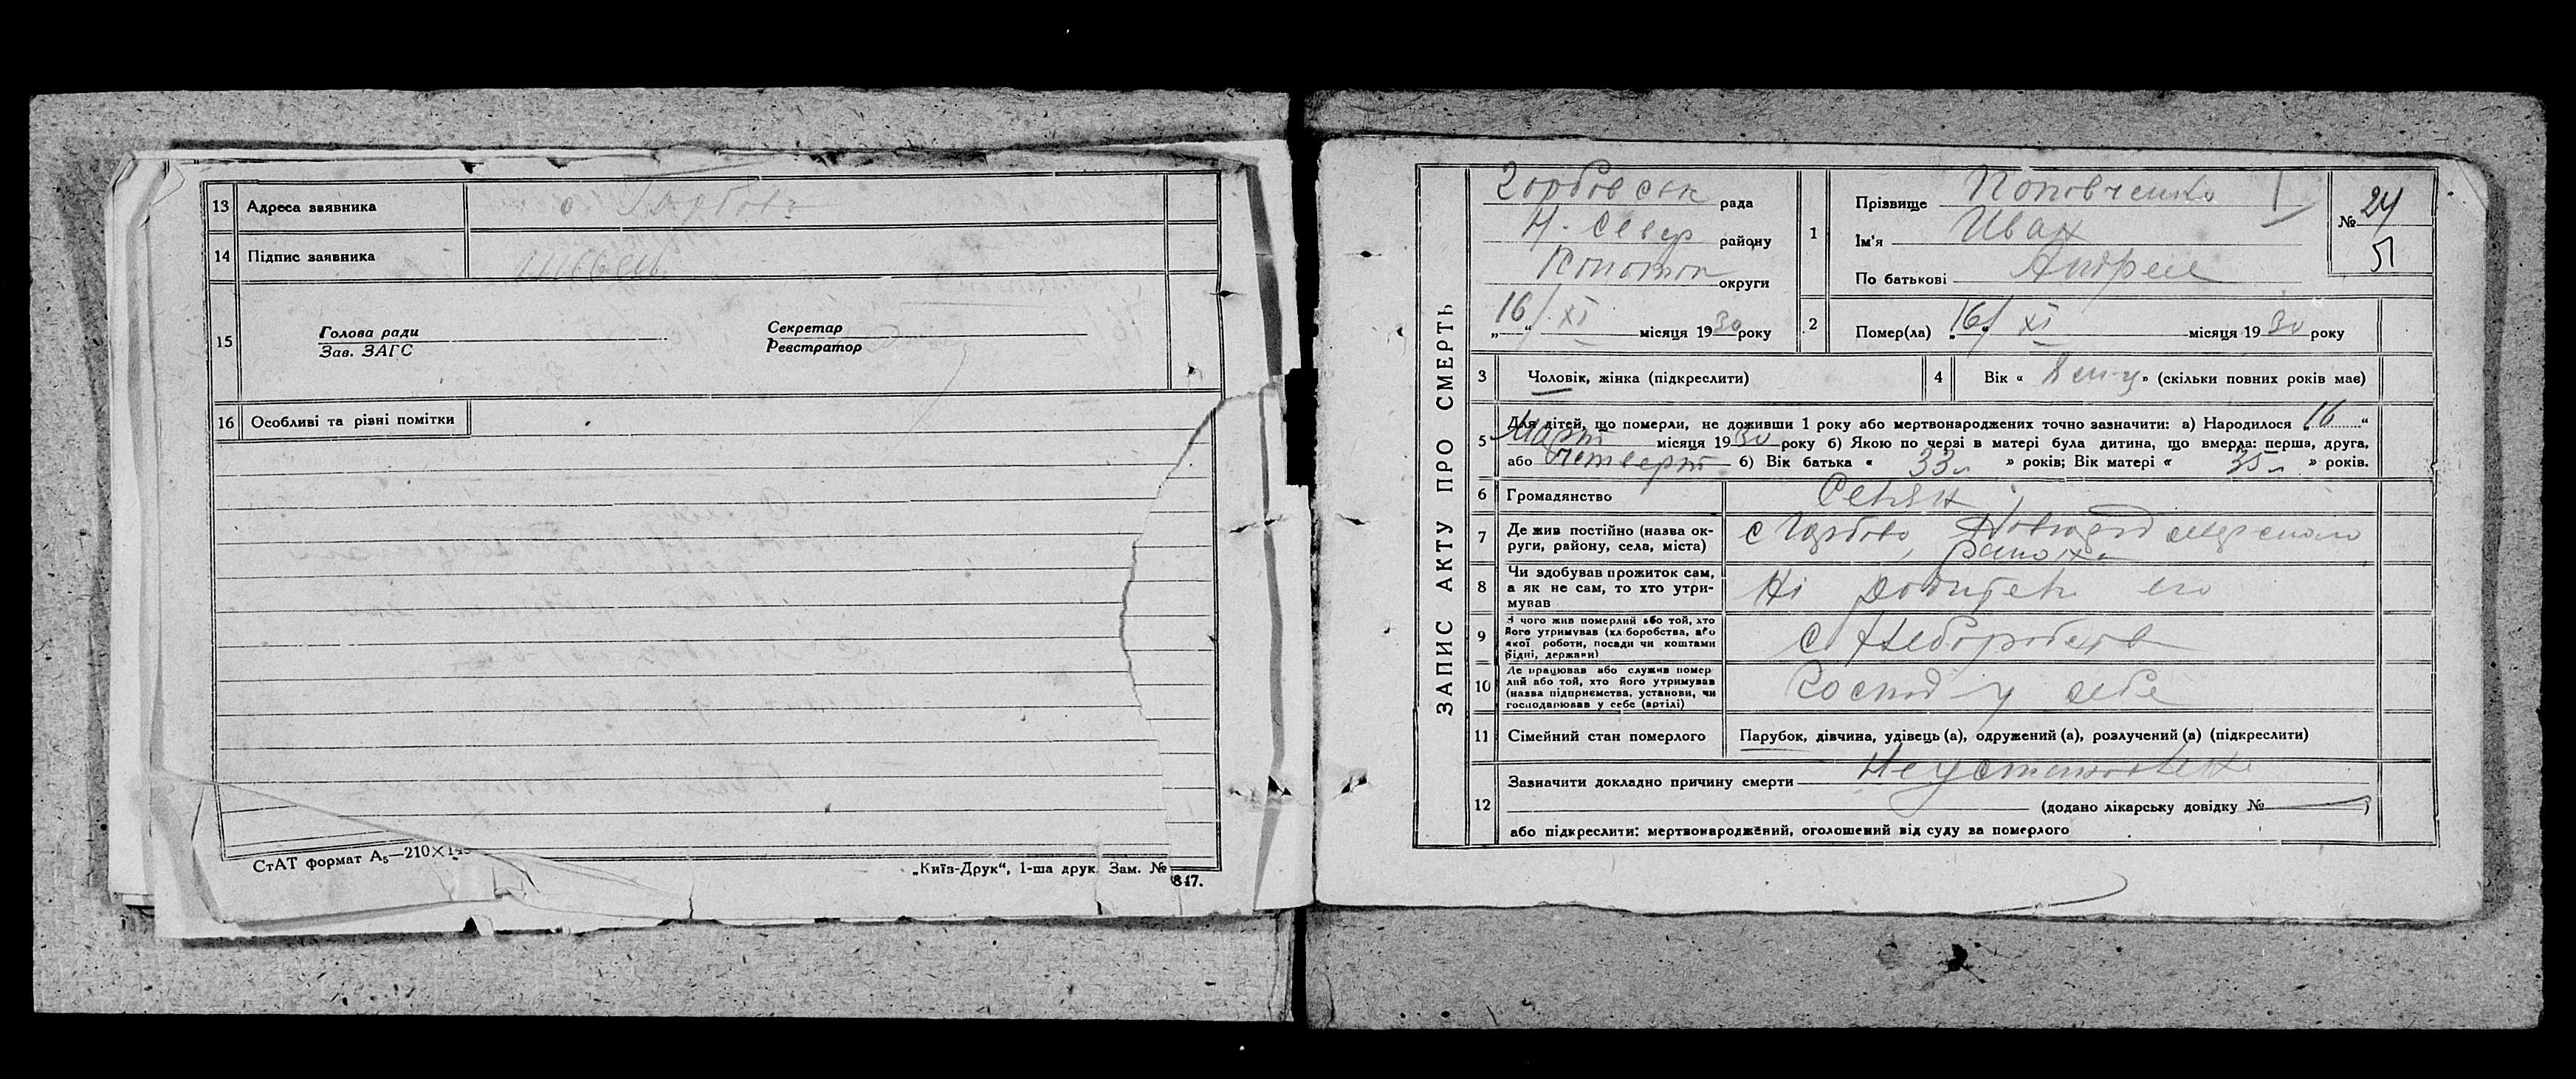 13 Адреса заявника с Горбово
14 Підпис заявника
15
Голова ради
Зав. ЗАГС
Секретар
Реєстратор
16 Особливі та різні помітки
СтАТ формат А5—210×148
„Київ-Друк“, 1-ша друк. Зам. № 847.
ЗАПИС АКТУ ПРО СМЕРТЬ
Горбовськ рада
Н. Север району
Конотоп округи
„16“ XI місяця 1930 року
1
Прізвище Поповченко
Ім'я Иван
По батькові Андрее
№ 24
51
2 Помер(ла) „16“ XI місяця 1930 року
3 Чоловік, жінка (підкреслити)
4 Вік « 8 м-ц » (скільки повних років має)
5 Для дітей, що померли, не доживши 1 року або мертвонароджених точно зазначити: а) Народилося „16“
Март місяця 1930 року б) Якою по черзі в матері була дитина, що вмерла: перша, друга,
або четверт б) Вік батька « 33 л » років; Вік матері « 35 л » років.
6 Громадянство Селян
7 Де жив постійно (назва ок-
руги, району, села, міста)
с Горбово,
району
8 Чи здобував прожиток сам,
а як не сам, то хто утри-
мував
Ні родители его
9 З чого жив померлий або той, хто
його утримував (хліборобства, або
якої роботи, посади чи коштами
рідні, держави)
С хлеборобств
10 Де працював або служив помер
лий або той, хто його утримував
(назва підприємства, установи, чи
господарював у себе (артілі)
Господ у себе
11 Сімейний стан померлого Парубок, дівчина, удівець (а), одружений (а), розлучений (а) (підкреслити)
12 Зазначити докладно причину смерти Неустановлен
(додано лікарську довідку № — )
або підкреслити: мертвонароджений, оголошений від суду за померлого